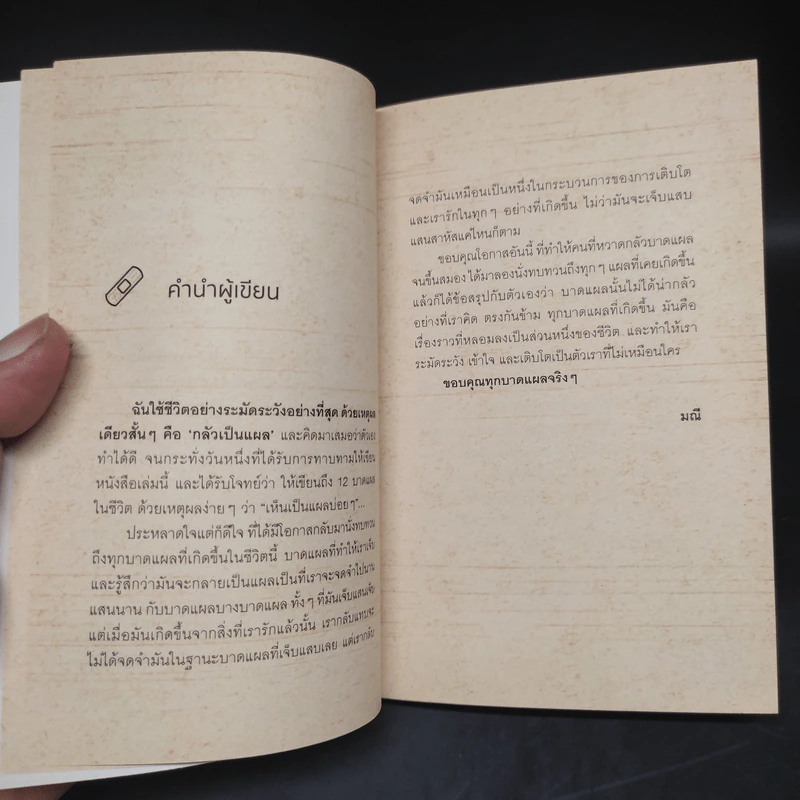 คำนำผู้เขียน
ฉันใช้ชีวิตอย่างระมัดระวังอย่างที่สุด ด้วยเหตุผล
เดียวสั้นๆ คือ ‘กลัวเป็นแผล’ และคิดมาเสมอว่าตัวเอง
ทำได้ดี จนกระทั่งวันหนึ่งที่ได้รับการทาบทามให้เขียน
หนังสือเล่มนี้ และได้รับโจทย์ว่า ให้เขียนถึง 12 บาดแผล
ในชีวิต ด้วยเหตุผลง่ายๆ ว่า “เห็นเป็นแผลบ่อยๆ”...
ประหลาดใจแต่ก็ดีใจ ที่ได้มีโอกาสกลับมานั่งทบทวน
ถึงทุกบาดแผลที่เกิดขึ้นในชีวิตนี้ บาดแผลที่ทำให้เราเจ็บ
และรู้สึกว่ามันจะกลายเป็นแผลเป็นที่เราจะจดจำไปนาน
แสนนาน กับบาดแผลบางบาดแผล ทั้งๆ ที่มันเจ็บแสนเจ็บ
แต่เมื่อมันเกิดขึ้นจากสิ่งที่เรารักแล้วนั้น เรากลับแทบจะ
ไม่ได้จดจำมันในฐานะบาดแผลที่เจ็บแสบเลย แต่เรากลับ
จดจำมันเหมือนเป็นหนึ่งในกระบวนการของการเติบโต
และเรารักในทุกๆ อย่างที่เกิดขึ้น ไม่ว่ามันจะเจ็บแสบ
แสนสาหัสแค่ไหนก็ตาม
ขอบคุณโอกาสอันนี้ ที่ทำให้คนที่หวาดกลัวบาดแผล
จนขึ้นสมอง ได้มาลองนั่งทบทวนถึงทุกๆ แผลที่เคยเกิดขึ้น
แล้วก็ได้ข้อสรุปกับตัวเองว่า บาดแผลนั้นไม่ได้น่ากลัว
อย่างที่เราคิด ตรงกันข้าม ทุกบาดแผลที่เกิดขึ้น มันคือ
เรื่องราวที่หลอมลงเป็นส่วนหนึ่งของชีวิต และทำให้เรา
ระมัดระวัง เข้าใจ และเติบโตเป็นตัวเราที่ไม่เหมือนใคร
ขอบคุณทุกบาดแผลจริงๆ
มณี